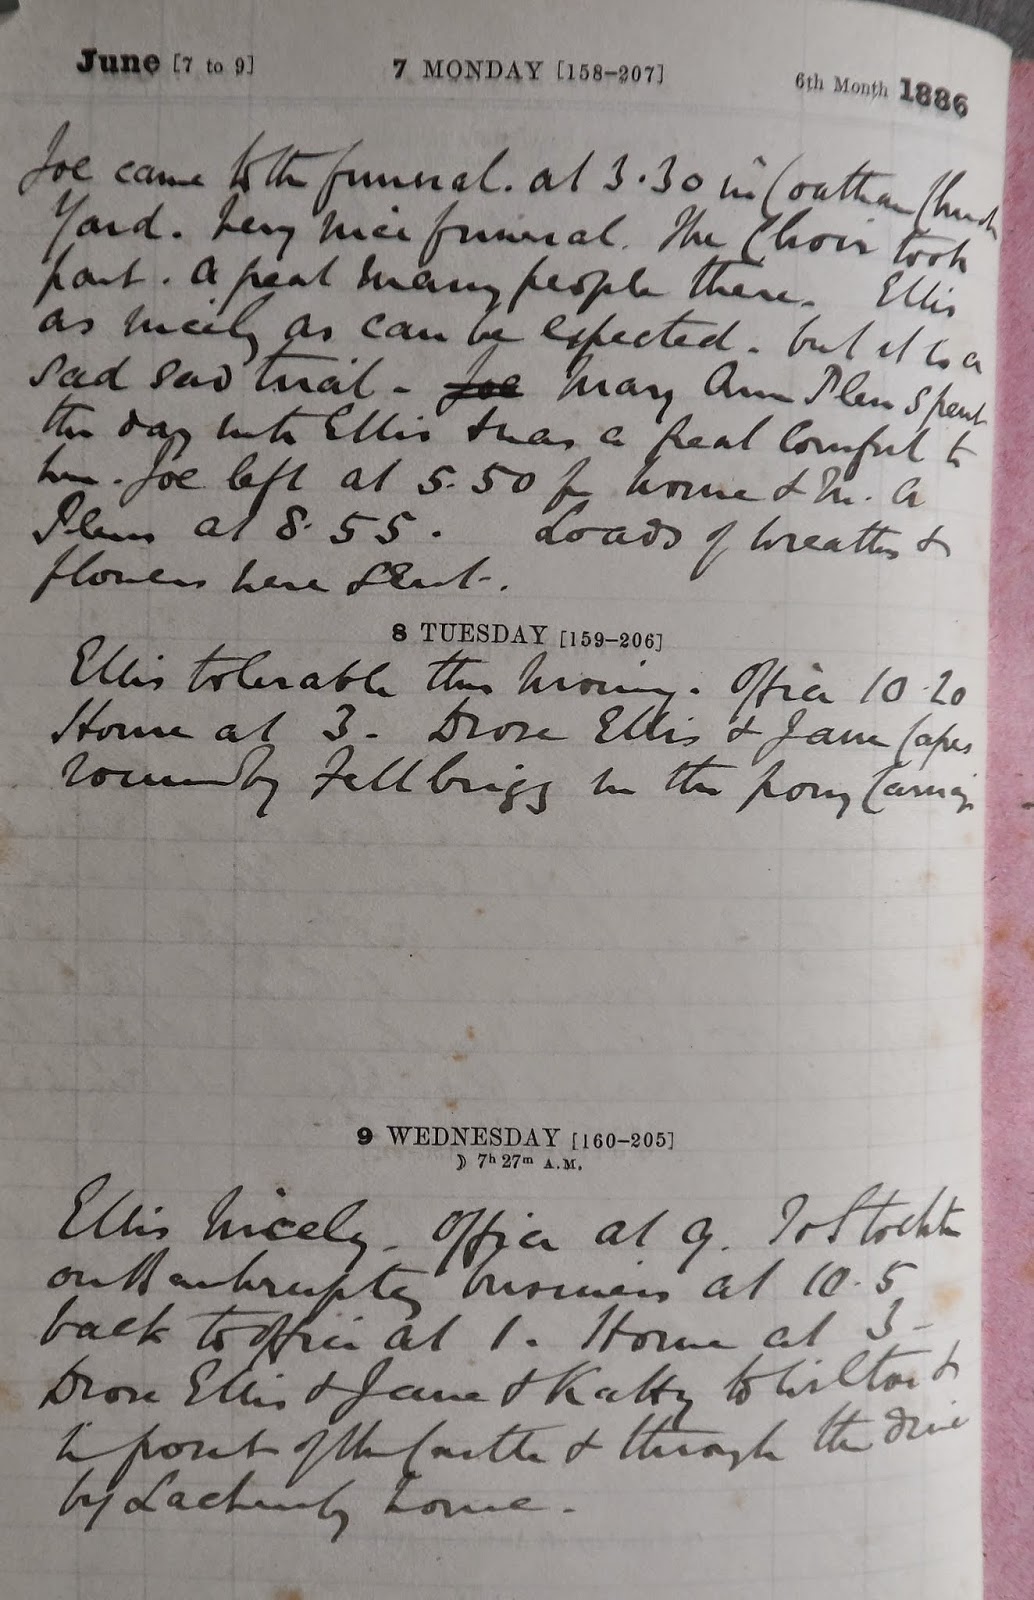 June [7 to 9] 7 MONDAY [158–207] 6th Month 1886
Joe came to the funeral. at 3.30 in Coatham Church
Yard. Very nice funeral. The Choir took
part. A great many people there. Ellis
as nicely as can be expected. but it is a
sad sad trial - Joe Mary Ann Plews spent
the day with Ellis & was a great comfort to
him. Joe left at 5.50 for home & M. A
Plews at 8.55. Loads of wreaths &
flowers were sent.
8 TUESDAY [159–206]
Ellis tolerable this morning. Office 10.20
Home at 3 - Drove Ellis & Jane Capes
round by Fell brigg in the pony Carriage
9 WEDNESDAY [160–205]
☽ 7h 27m A.M.
Ellis Nicely. Office at 9. To Stockton
on Bankruptcy business at 10.5
back to Office at 1. Home at 3 -
Drove Ellis & Jane & Katty to Wilton &
in front of the Castle & through the drive
by Lackenby home.